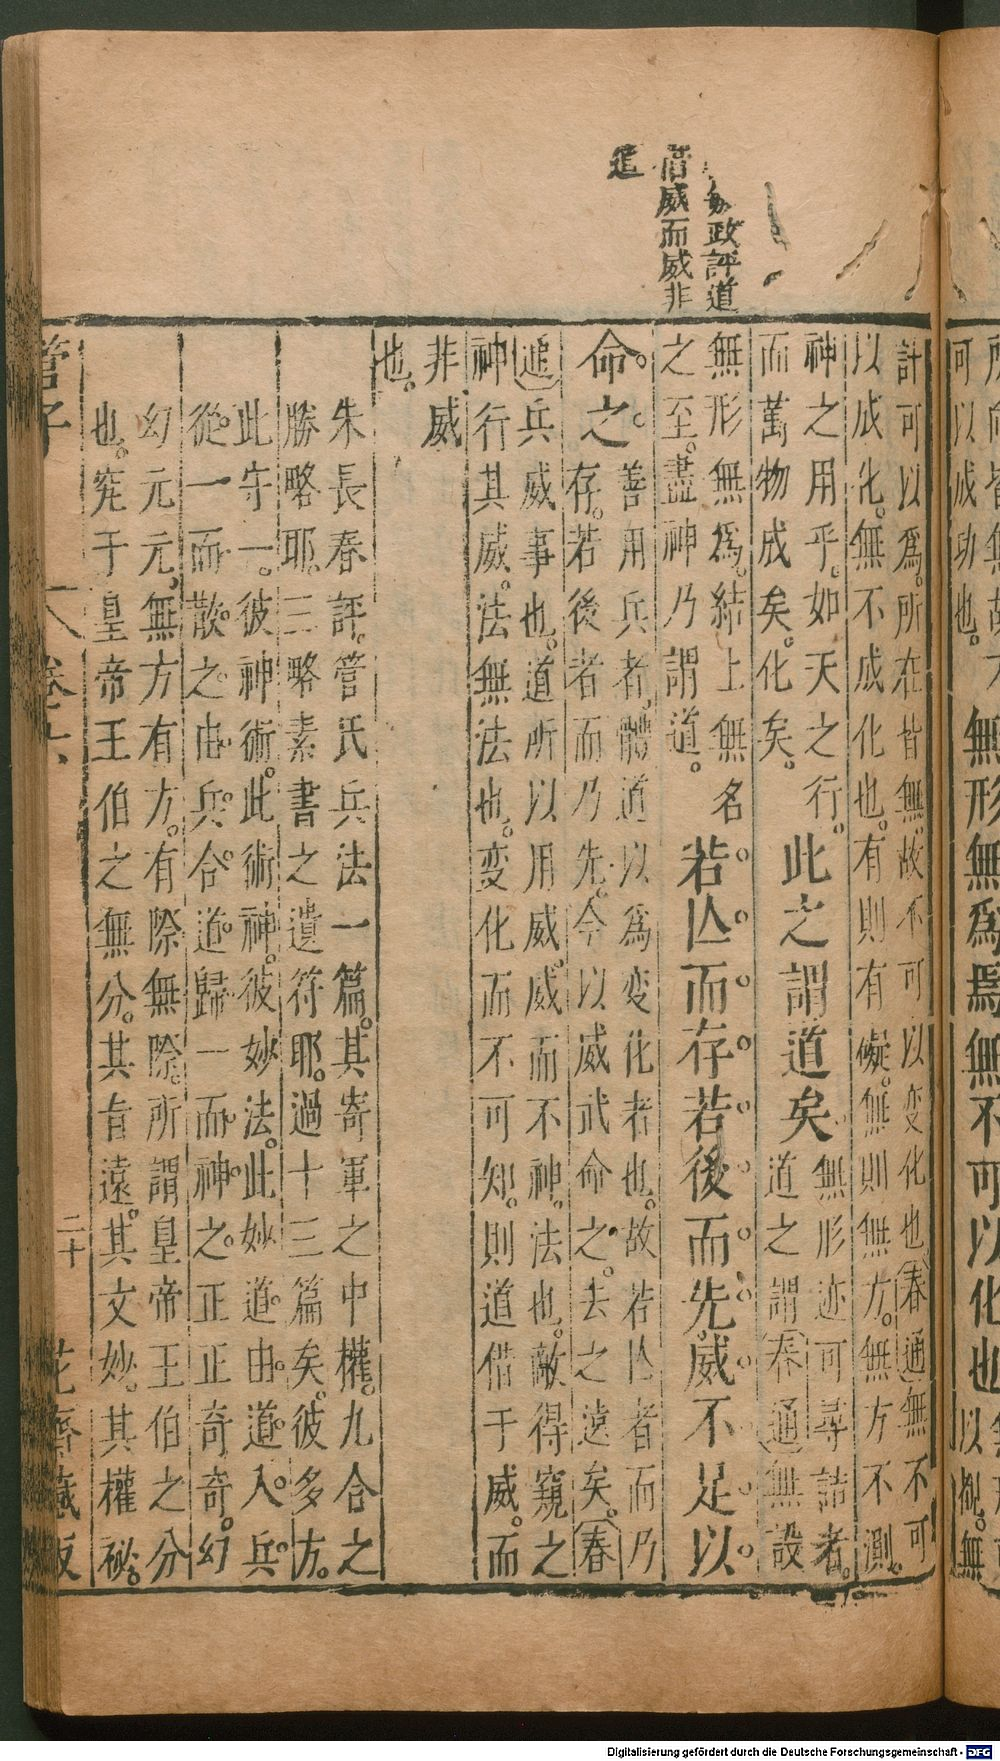 政評道
借威而威非
道
計可以爲所在皆無故不可以变化也春通無不可
以成化。無不成化也。有則有礙。無則無方。無方不測。
神之用乎。如天之行。此之謂道矣。無形迹可尋詰者。
而萬物成矣。化矣。道之謂春通無設
無形無爲。結上無名
之至。盡神乃謂道。若亾而存若後而先。威不足以
命之。善用兵者體道以爲变化者也。故若亾者而乃
存。若後者而乃先。今以威武命之。去之遠矣。春
通兵威事也。道所以用威。威而不神。法也。敵得窺之
神行其威。法無法也。变化而不可知。則道借于威。而
非威
也。
朱長春評。管氏兵法一篇。其寄軍之中權。九合之
勝略耶。三略素書之遺符耶。過十三篇矣。彼多方。
此守一。彼神術。此術神。彼妙法。此妙道。由道入兵。
從一而散之由兵合道歸一而神之正正奇奇。幻
幻元元。無方有方。有際無際。所謂皇帝王伯之分
也。寃于皇帝王伯之無分。其旨遠。其文妙。其權祕。
管子
卷六
二十
花齋藏板
可以成功也。
無形無爲焉無不可以化也
Digitalisierung gefördert durch die Deutsche Forschungsgemeinschaft - DFG